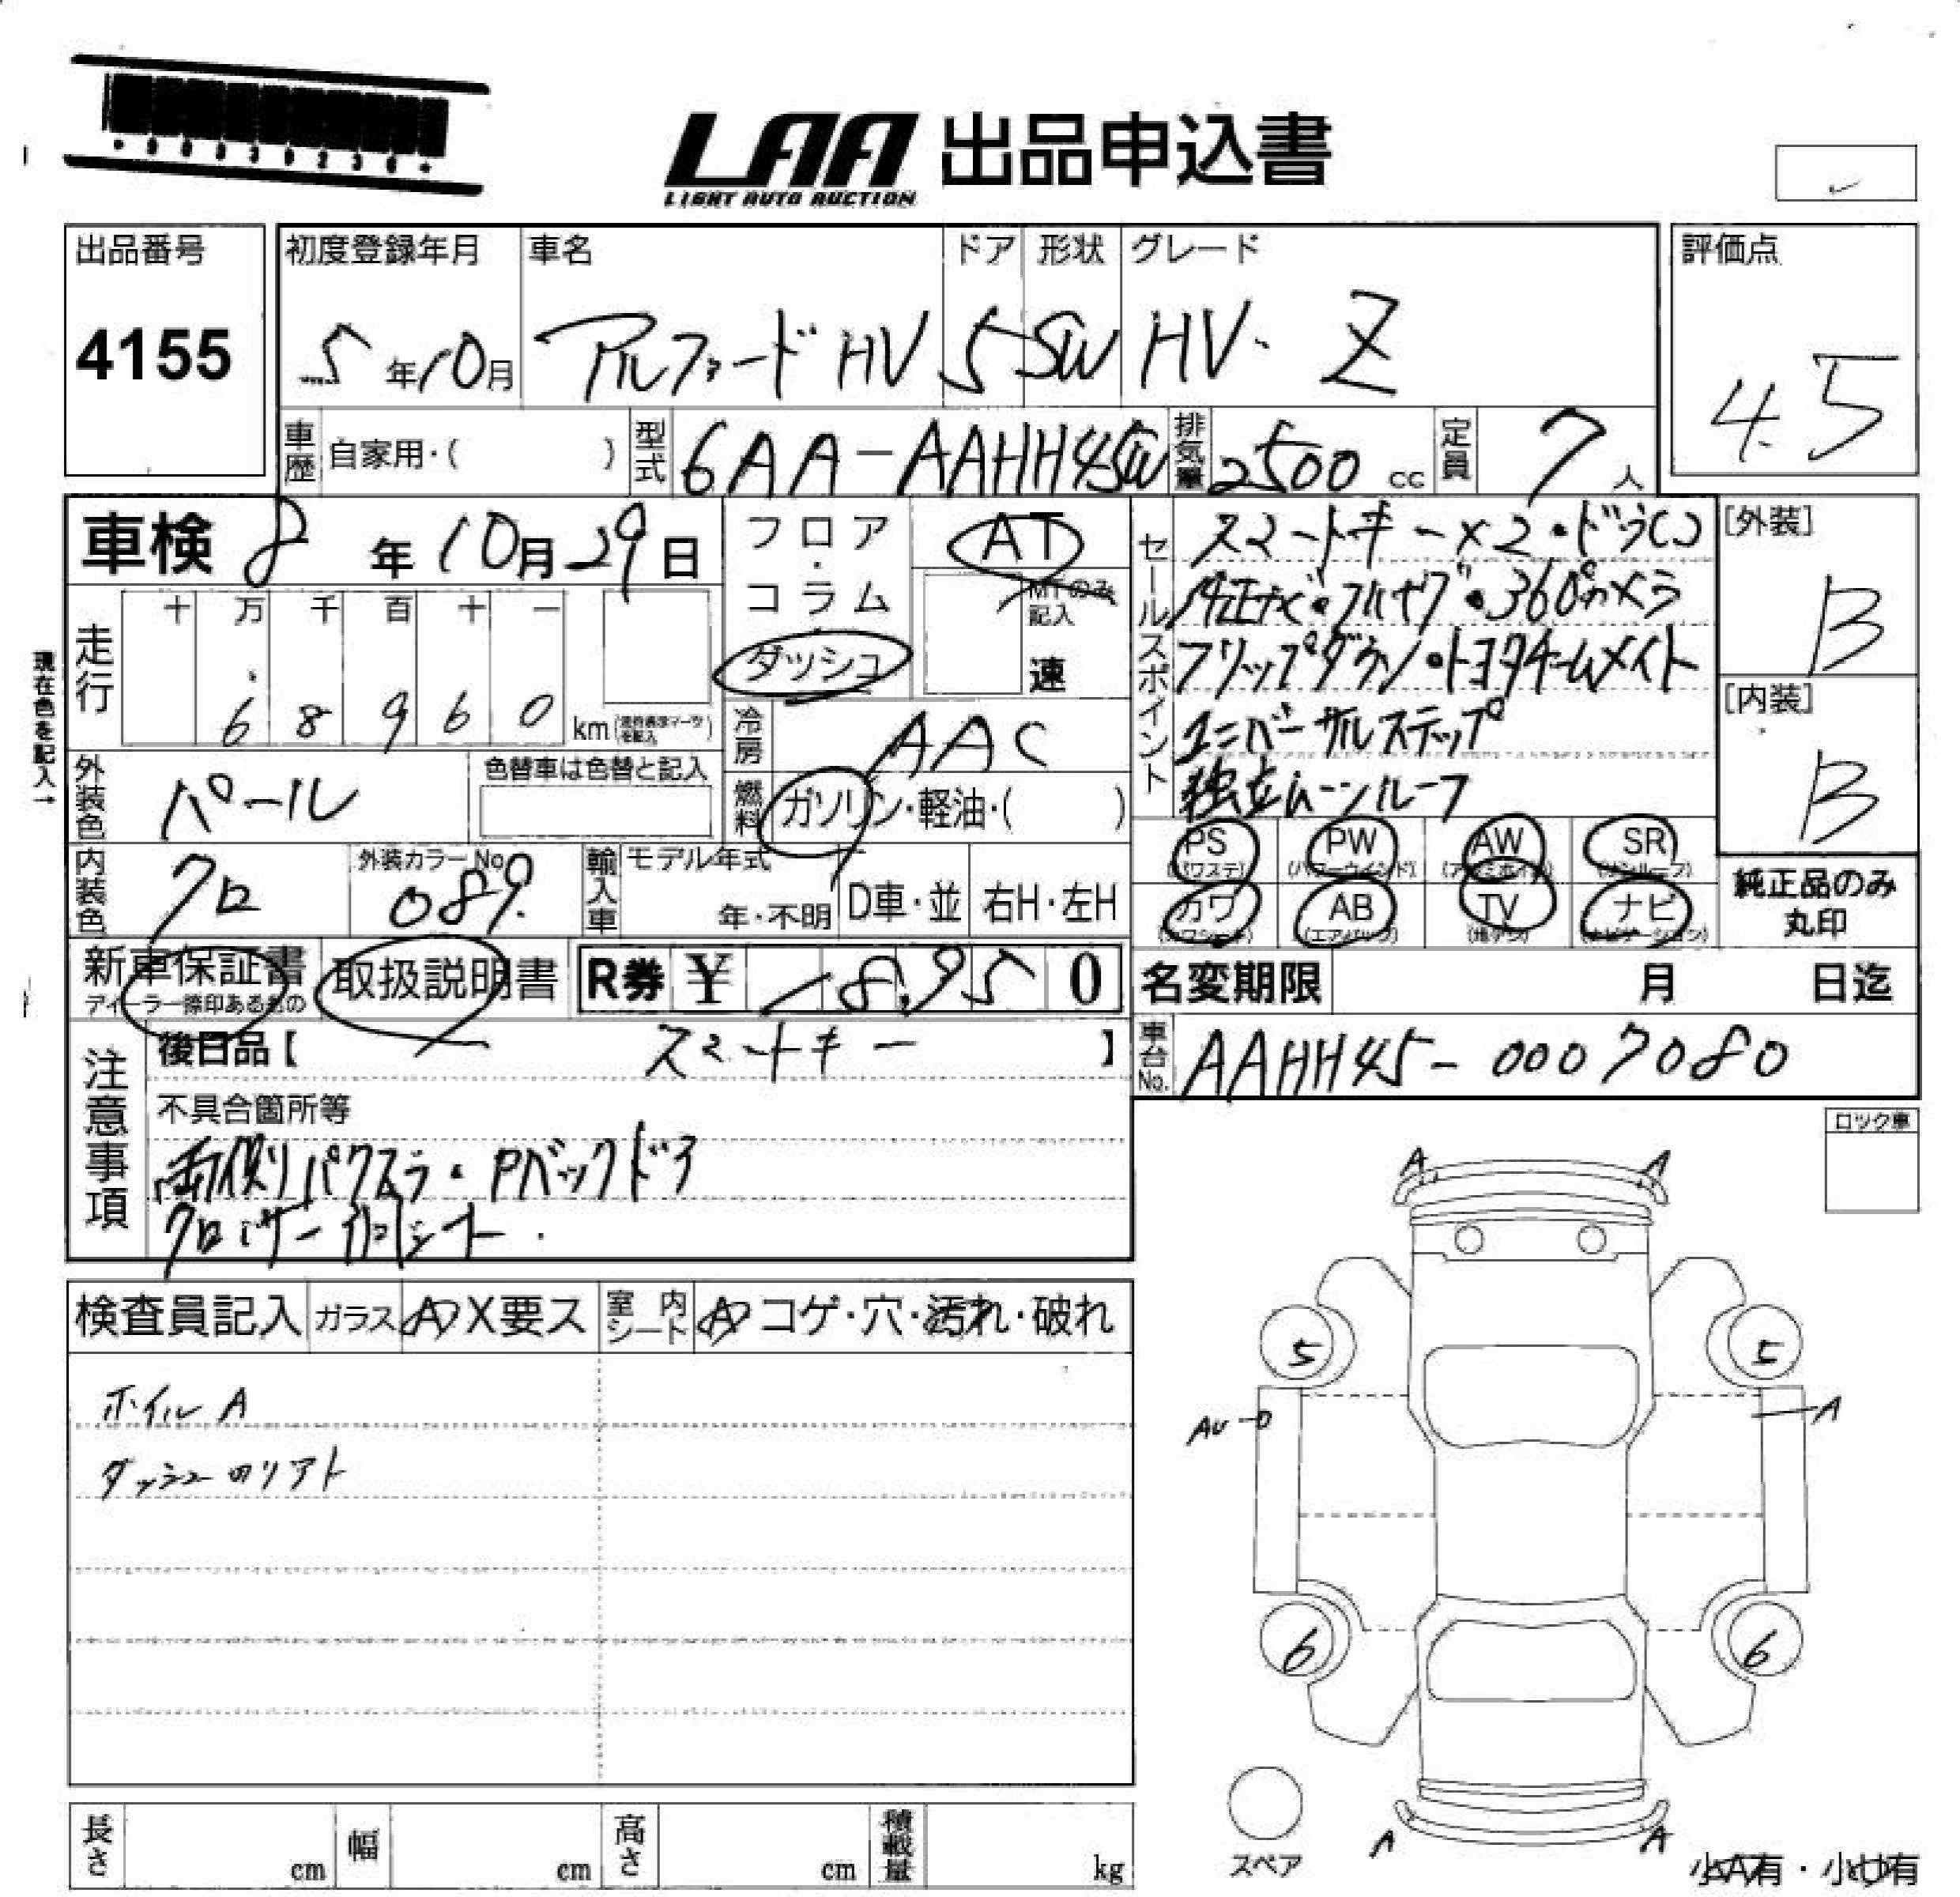 LAA 出品申込書
LIGHT AUTO AUCTION
出品番号
4155
初度登録年月 車名 ドア 形状 グレード
5年10月 アルファードHV 5 SW HV・Z
評価点
4.5
車歴 自家用・( ) 型式 6AA-AAHH45W 排気量 2500 cc 定員 7人
車検 8年10月29日
フロア・コラム
ダッシュ
AT
MTのみ記入
速
走行 十 万 千 百 十 一
6 8 9 6 0 km
現在色を記入→
外装色 パール 色替車は色替と記入
冷房 AAC
燃料 ガソリン・軽油・( )
内装色 クロ 外装カラーNo. 089
輸入車 モデル年式 年・不明 D車・並 右H・左H
新車保証書 取扱説明書 R券 ¥ 18,950
ディーラー捺印あるもの
セールスポイント
スマートキー×2・ドラレコ
純正ナビ・フルセグ・360°カメラ
フリップダウン・トヨタチームメイト
ユニバーサルステップ
独立ムーンルーフ
[外装]
B
[内装]
B
PS PW AW SR
(パワステ) (パワーウインド) (アルミホイル) (サンルーフ)
カワ AB TV ナビ
(カワシート) (エアバッグ) (地デジ) (ナビゲーション)
純正品のみ
丸印
名変期限 月 日迄
車台No. AAHH45-0007080
注意事項
後日品【 スマートキー 】
不具合箇所等
両側パワスラ・Pバックドア
検査員記入 ガラス A X要ス 室内シート A コゲ・穴・汚れ・破れ
ホイルA
ロック車
A A
5 5
A
6 6
A A
スペア
長さ cm 幅 cm 高さ cm 積載量 kg
小A有・小U有